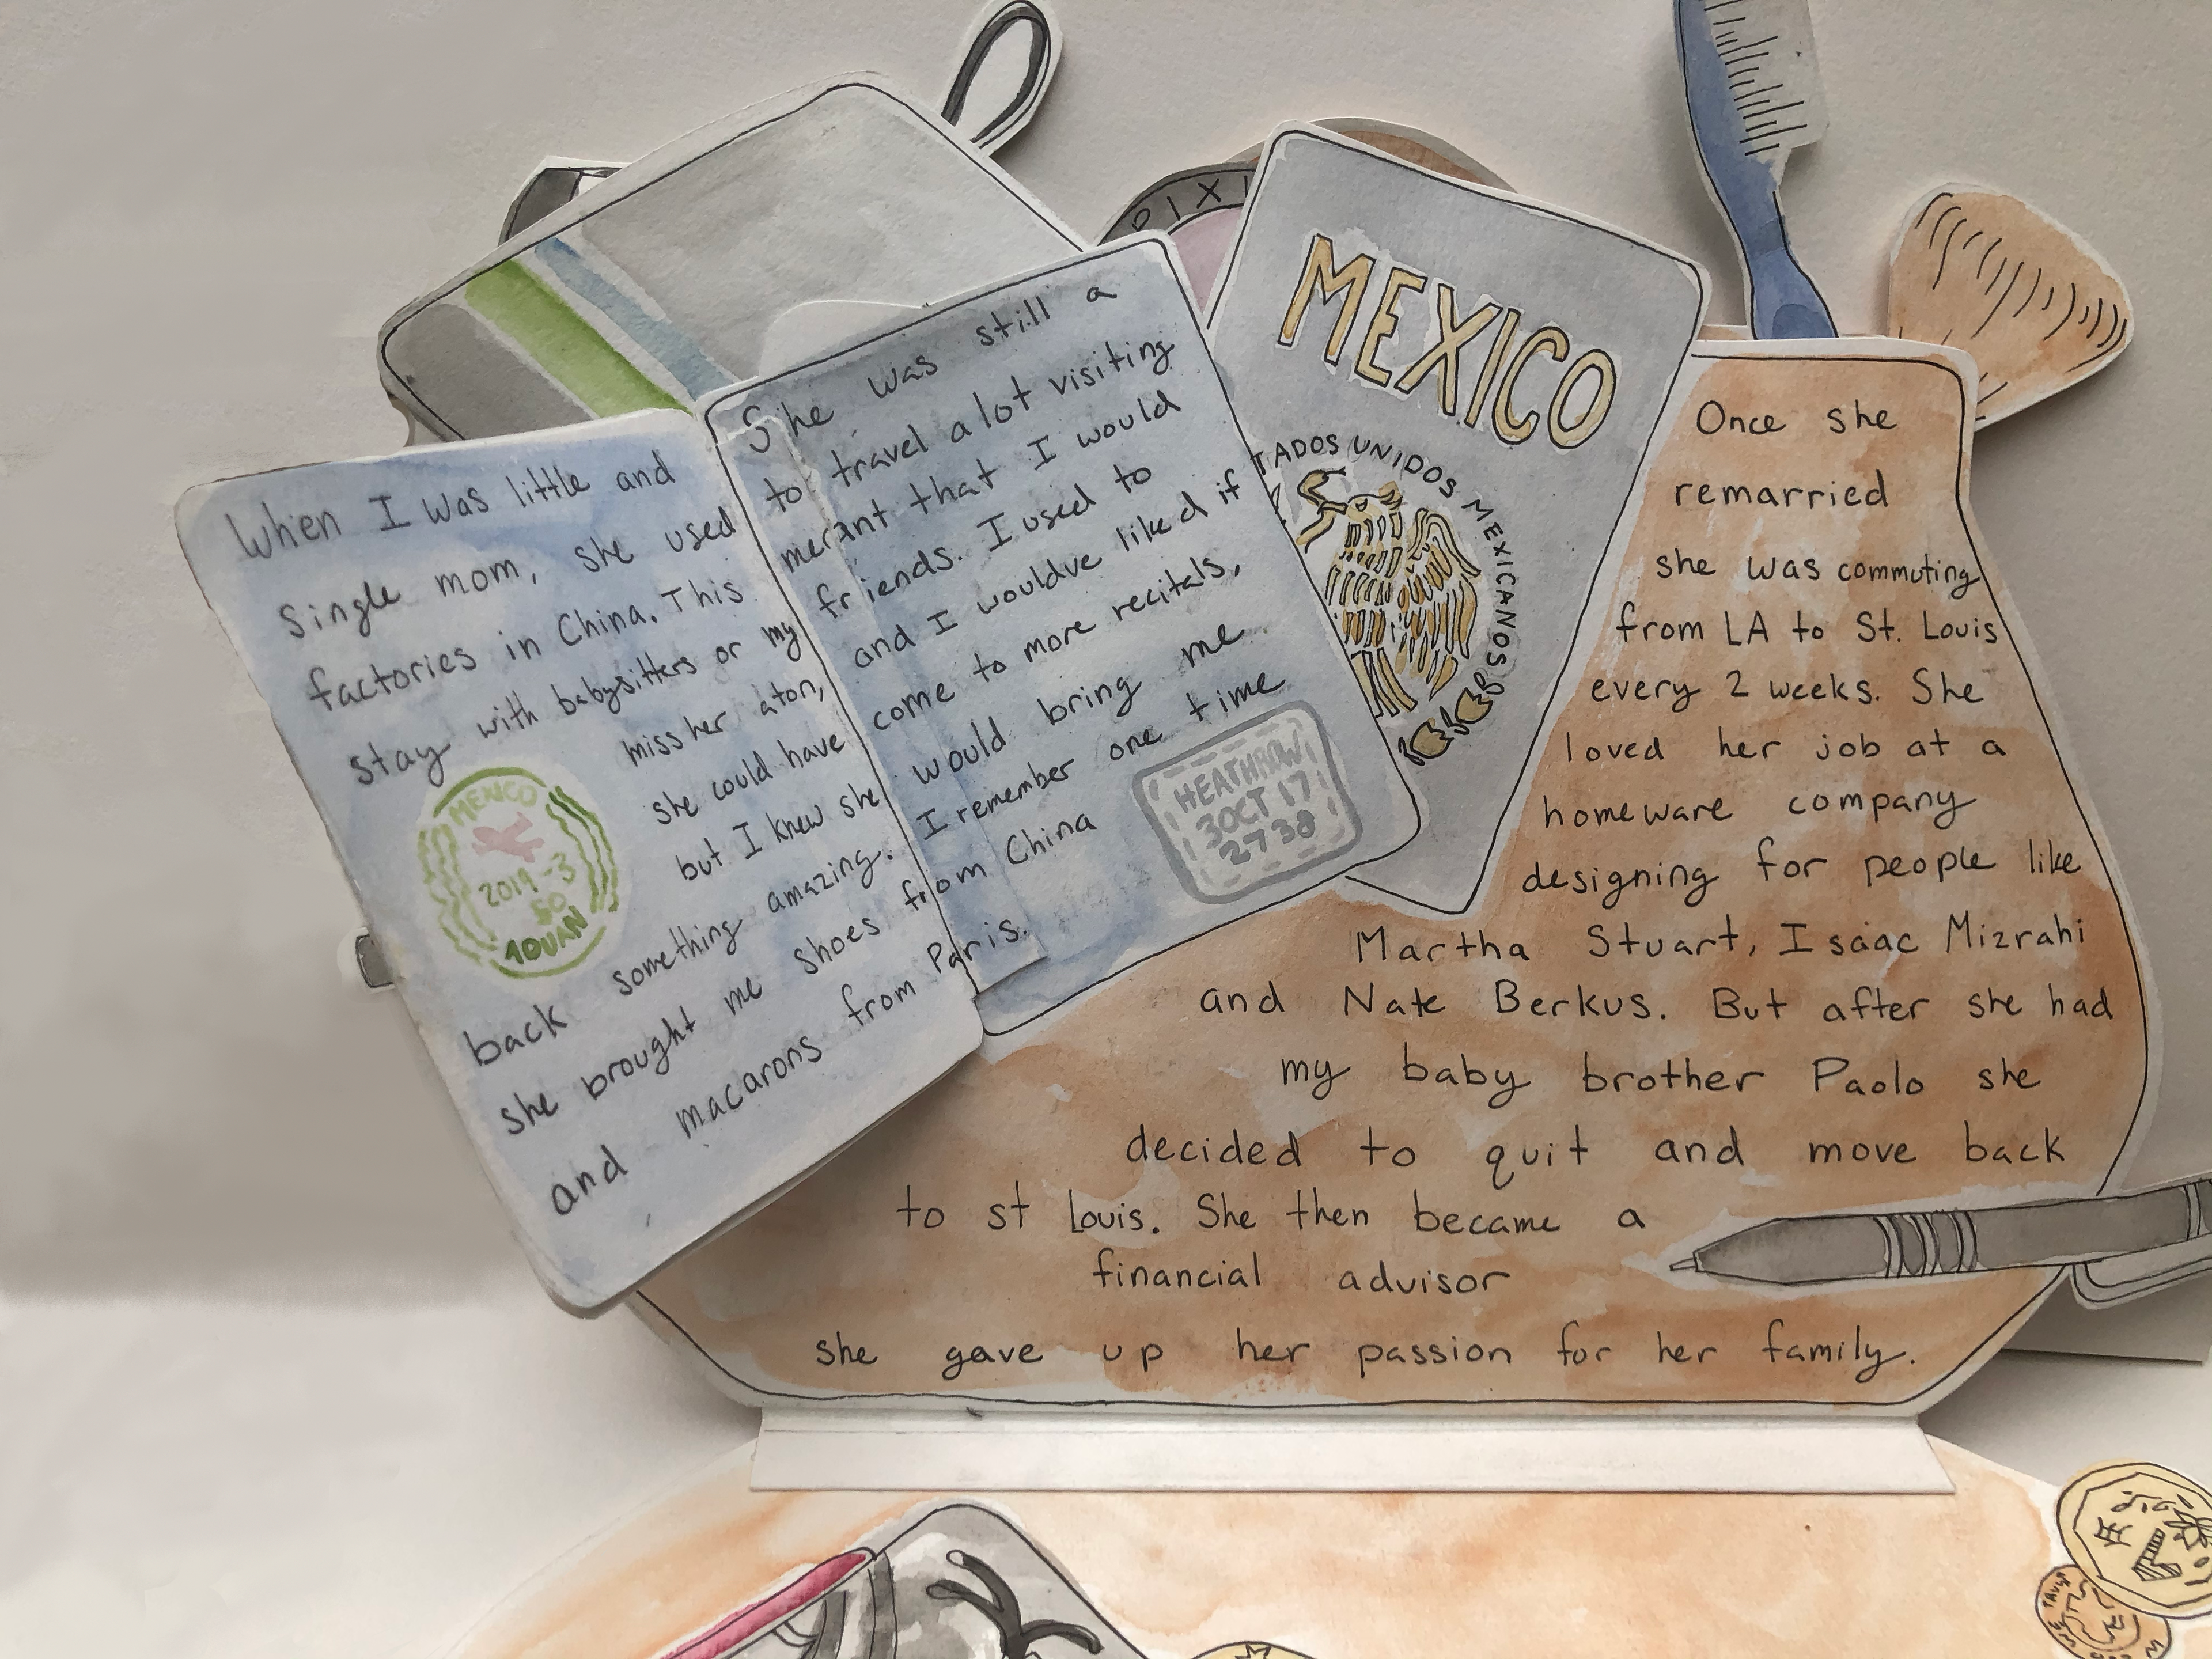 PIXI
MEXICO
TADOS UNIDOS MEXICANOS
When I was little and She was still a
Single mom, she used to travel a lot visiting
factories in China. This meant that I would
stay with babysitters or my friends. I used to
miss her aton, and I wouldve liked if
she could have come to more recitals,
but I knew she would bring me
back something amazing. I remember one time
she brought me shoes from China
and macarons from Paris.
MEXICO
2019-3
50
10UAN
HEATHROW
30CT 17
2738
Once she
remarried
she was commuting
from LA to St. Louis
every 2 weeks. She
loved her job at a
homeware company
designing for people like
Martha Stuart, Isaac Mizrahi
and Nate Berkus. But after she had
my baby brother Paolo she
decided to quit and move back
to st Louis. She then became a
financial advisor
she gave up her passion for her family.